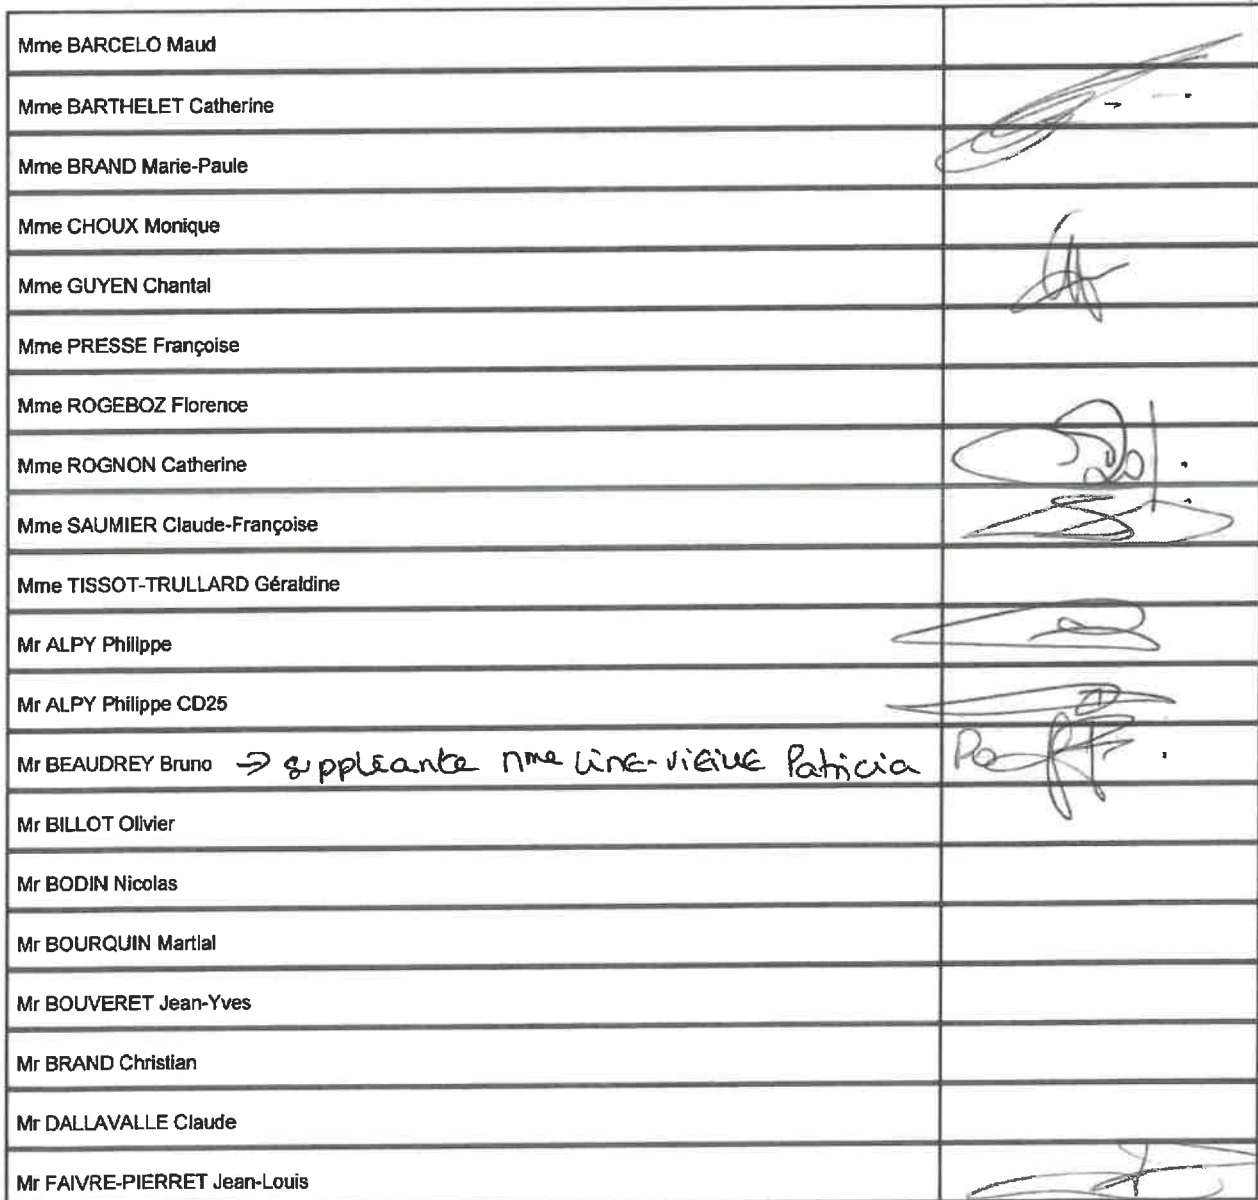 Mme BARCELO Maud
Mme BARTHELET Catherine
Mme BRAND Marie-Paule
Mme CHOUX Monique
Mme GUYEN Chantal
Mme PRESSE Françoise
Mme ROGEBOZ Florence
Mme ROGNON Catherine
Mme SAUMIER Claude-Françoise
Mme TISSOT-TRULLARD Géraldine
Mr ALPY Philippe
Mr ALPY Philippe CD25
Mr BEAUDREY Bruno → suppléante Mme Patricia
Mr BILLOT Olivier
Mr BODIN Nicolas
Mr BOURQUIN Martial
Mr BOUVERET Jean-Yves
Mr BRAND Christian
Mr DALLAVALLE Claude
Mr FAIVRE-PIERRET Jean-Louis